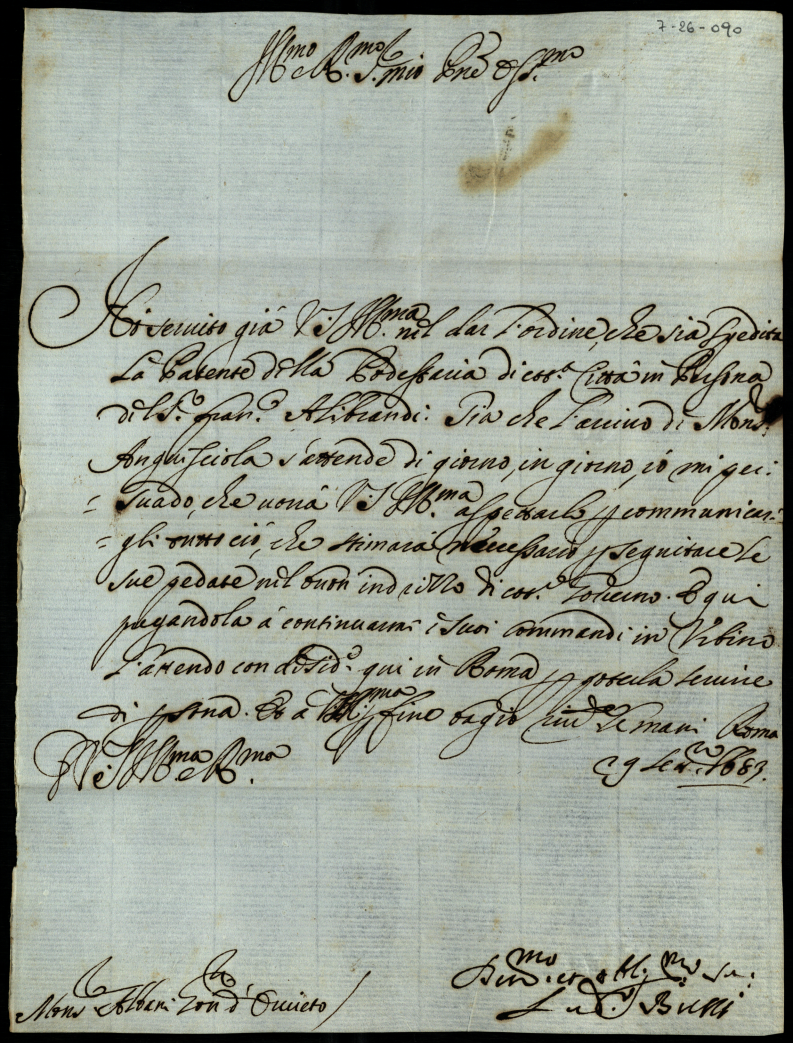 7-26-090
Ill.mo e R.mo S. mio P.ne Oss.mo
Hò seruito già V.S. Ill.ma nel dar l'ordine, che sia spedita
la Patente della Podestaria di cot.a Città in Persona
del S.r Fran.co Alibrandi. Già che l'arriuo di Mons.r
Anguisciola s'attende di giorno, in giorno, io mi per:
=suado, che uorrà V.S. Ill.ma aspettarlo p communicar:
=gli tutto ciò, che stimarà necessario p seguitare le
sue pedate nel buon indrizzo di cot.o Gouerno. E qui
pregandola à continuarmi i suoi commandi in Vrbino
l'attendo con desid.o qui in Roma p poterla seruire
di psona. Et à V.S. Ill.ma p fine bagio le mani Roma
29 1683.
D V.S. Ill.ma e R.ma
Deu.mo et obblig.mo Se:
Mons.r Albani Gou.re d'Oruieto